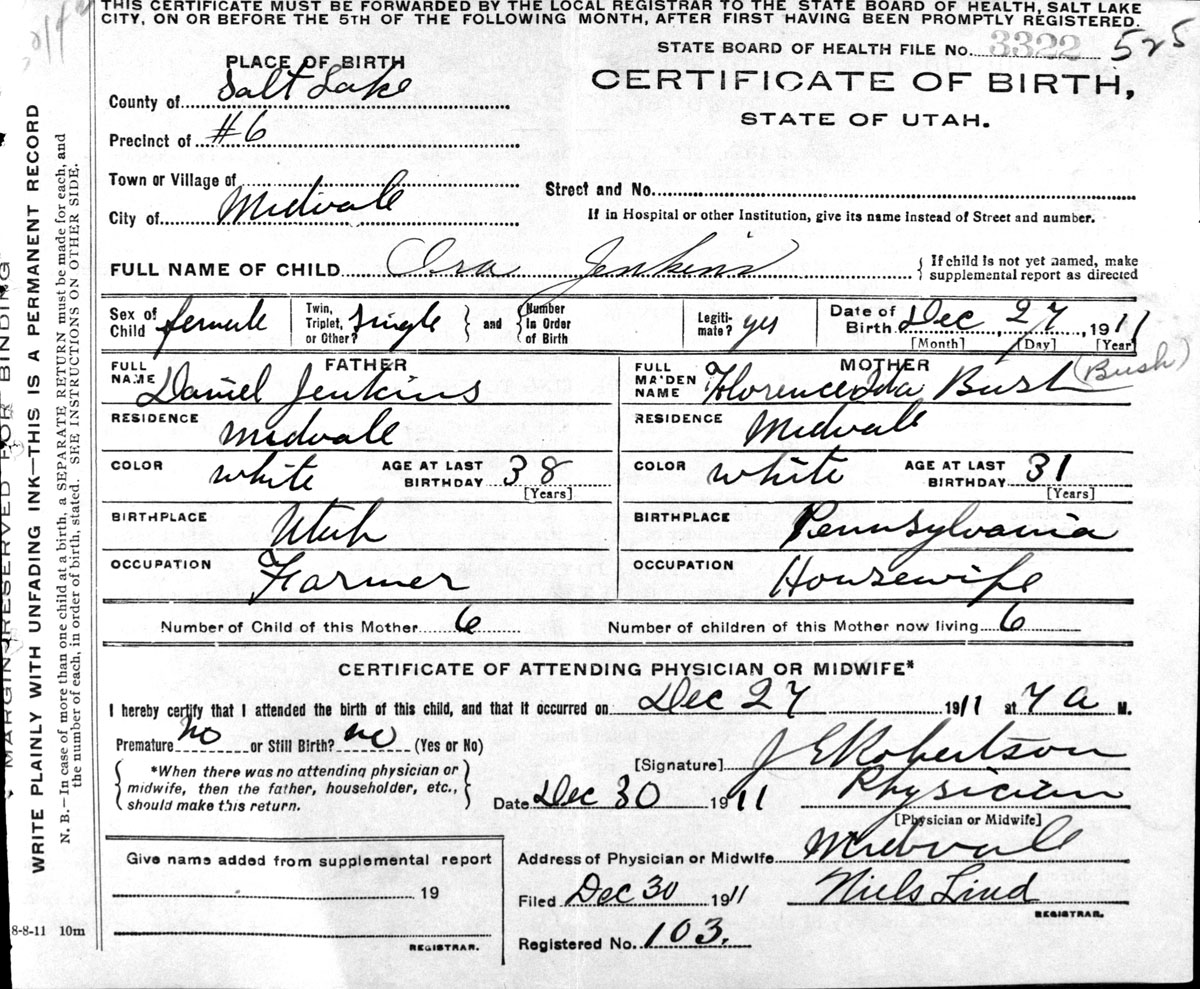 THIS CERTIFICATE MUST BE FORWARDED BY THE LOCAL REGISTRAR TO THE STATE BOARD OF HEALTH, SALT LAKE
CITY, ON OR BEFORE THE 5TH OF THE FOLLOWING MONTH, AFTER FIRST HAVING BEEN PROMPTLY REGISTERED.
STATE BOARD OF HEALTH FILE No. 3322 525
PLACE OF BIRTH
CERTIFICATE OF BIRTH,
STATE OF UTAH.
County of Salt Lake
Precinct of #6
Town or Village of
Street and No.
City of Midvale
If in Hospital or other Institution, give its name instead of Street and number.
FULL NAME OF CHILD Ora Jenkins { If child is not yet named, make
supplemental report as directed
Sex of Child female Twin, Triplet, or Other? Single } and { Number in Order of Birth Legiti-mate? yes Date of Birth Dec 27, 1911
[Month] [Day] [Year]
FATHER MOTHER
FULL NAME Daniel Jenkins FULL MAIDEN NAME Florence Ida Bush (Bush)
RESIDENCE Midvale RESIDENCE Midvale
COLOR white AGE AT LAST BIRTHDAY 38 [Years] COLOR white AGE AT LAST BIRTHDAY 31 [Years]
BIRTHPLACE Utah BIRTHPLACE Pennsylvania
OCCUPATION Farmer OCCUPATION Housewife
Number of Child of this Mother 6 Number of children of this Mother now living 6
CERTIFICATE OF ATTENDING PHYSICIAN OR MIDWIFE*
I hereby certify that I attended the birth of this child, and that it occurred on Dec 27 1911 at 7 a M.
Premature no or Still Birth? no (Yes or No)
[Signature] J E Robertson
{ *When there was no attending physician or
midwife, then the father, householder, etc.,
should make this return. }
Date Dec 30 1911 Physician
[Physician or Midwife]
Give name added from supplemental report
19
REGISTRAR.
Address of Physician or Midwife Midvale
Filed Dec 30 1911 Niels Lind
REGISTRAR.
Registered No. 103.
8-8-11 10m
MARGIN RESERVED FOR BINDING
WRITE PLAINLY WITH UNFADING INK—THIS IS A PERMANENT RECORD
N. B.—In case of more than one child at a birth, a SEPARATE RETURN must be made for each, and
the number of each, in order of birth, stated. SEE INSTRUCTIONS ON OTHER SIDE.